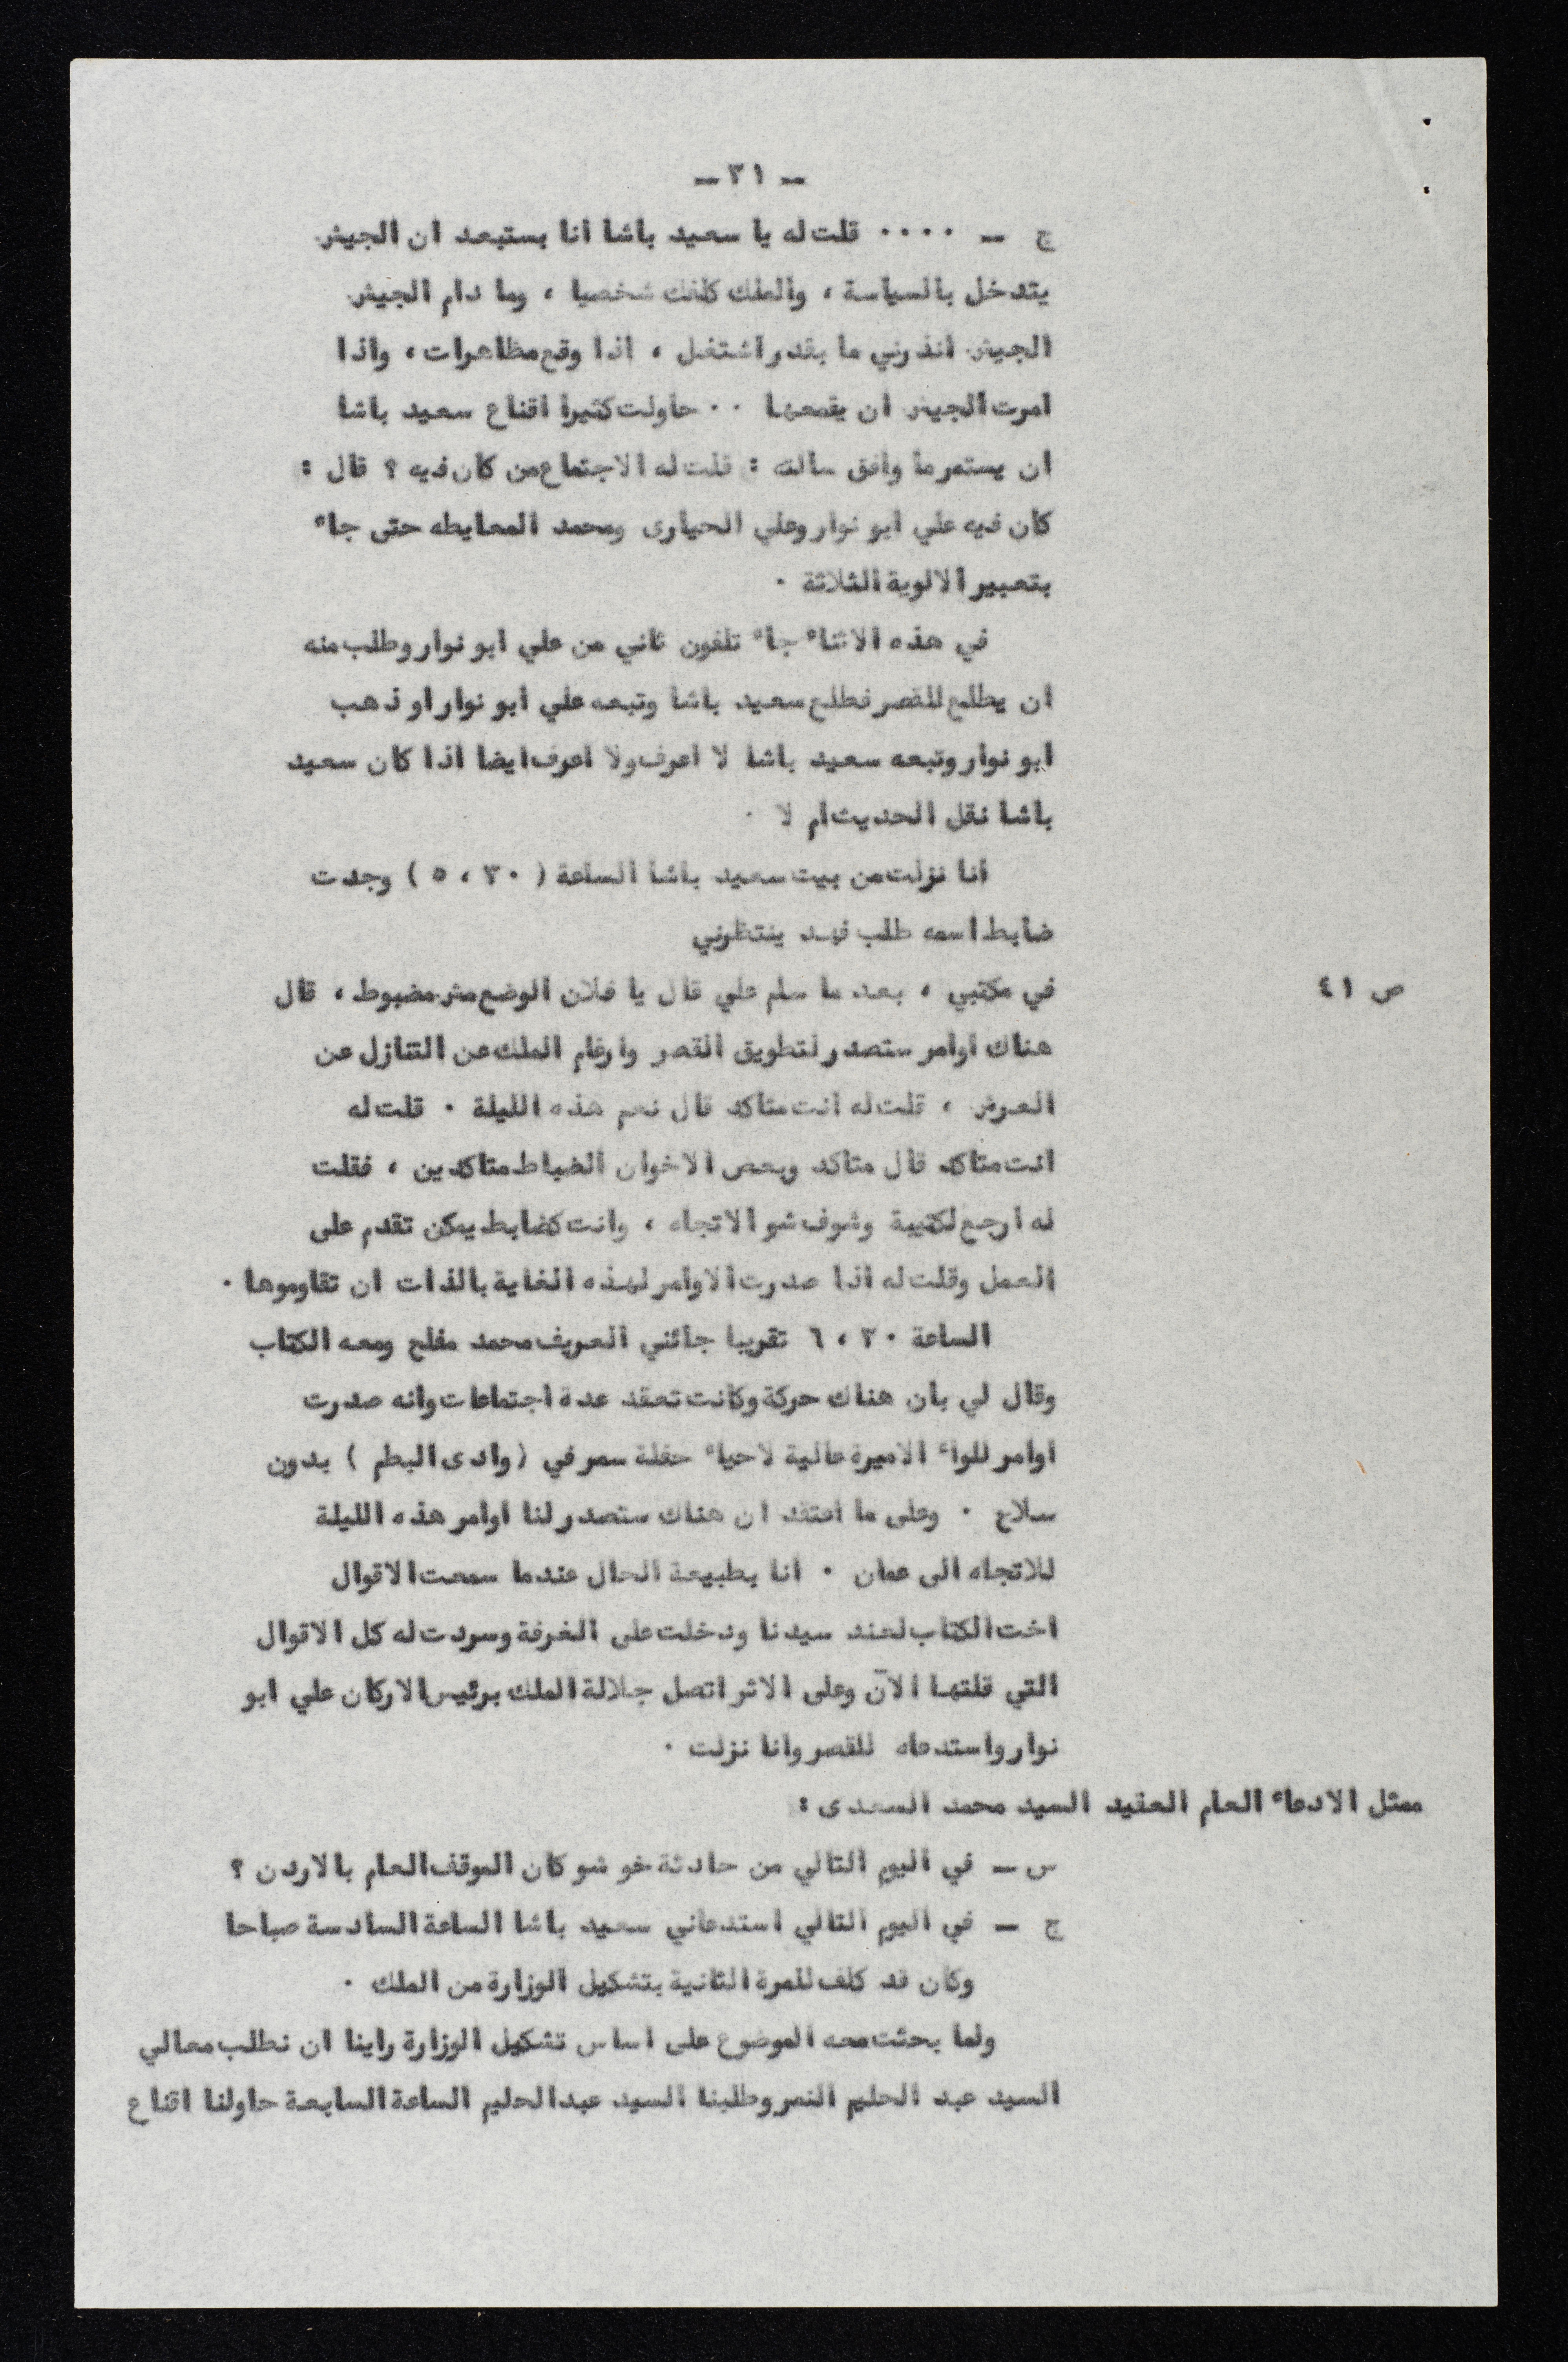 ـ ٣١ ـ
ج ـ ٠٠٠٠ قلت له يا سعيد باشا انا بستبعد ان الجيش
يتدخل بالسياسة ، والملك كلفك شخصيا ، وما دام الجيش
الجيش انذرني ما بقدر اشتغل ، اذا وقع مظاهرات ، واذا
امرت الجيش ان يقمعها ٠٠ حاولت كثيرا اقناع سعيد باشا
ان يستمر ما وافق سالته : قلت له الاجتماع من كان فيه ؟ قال :
كان فيه علي ابو نوار وعلي الحيارى ومحمد المعايطه حتى جاء
بتعبير الالوية الثلاثة ٠
في هذه الاثناء جاء تلفون ثاني من علي ابو نوار وطلب منه
ان يطلع للقصر فطلع سعيد باشا وتبعه علي ابو نوار او ذهب
ابو نوار وتبعه سعيد باشا لا اعرف ولا اعرف ايضا اذا كان سعيد
باشا نقل الحديث ام لا ٠
انا نزلت من بيت سعيد باشا الساعة ( ٣٠ ، ٥ ) وجدت
ضابط اسمه طلب فهد ينتظرني
ص ٤١ في مكتبي ، بعد ما سلم علي قال يا فلان الوضع مش مضبوط ، قال
هناك اوامر ستصدر لتطويق القصر وارغام الملك عن التنازل عن
العرش ، قلت له انت متاكد قال نعم هذه الليلة ٠ قلت له
انت متاكد قال متاكد وبعض الاخوان الضباط متاكدين ، فقلت
له ارجع لكتيبة وشوف شو الاتجاه ، وانت كضابط يمكن تقدم على
العمل وقلت له اذا صدرت الاوامر لهذه الغاية بالذات ان تقاوموها ٠
الساعة ٣٠ ، ٦ تقريبا جائني العريف محمد مفلح ومعه الكتاب
وقال لي بان هناك حركة وكانت تعقد عدة اجتماعات وانه صدرت
اوامر للواء الاميرة عالية لاحياء حفلة سمر في ( وادى البطم ) بدون
سلاح ٠ وعلى ما اعتقد ان هناك ستصدر لنا اوامر هذه الليلة
للاتجاه الى عمان ٠ انا بطبيعة الحال عندما سمعت الاقوال
اخت الكتاب لعند سيدنا ودخلت على الغرفة وسردت له كل الاقوال
التي قلتها الآن وعلى الاثر اتصل جلالة الملك برئيس الاركان علي ابو
نوار واستدعاه للقصر وانا نزلت ٠
ممثل الادعاء العام العقيد السيد محمد السعدى :
س ـ في اليوم التالي من حادثة خو شو كان الموقف العام بالاردن ؟
ج ـ في اليوم التالي استدعاني سعيد باشا الساعة السادسة صباحا
وكان قد كلف للمرة الثانية بتشكيل الوزارة من الملك ٠
ولما بحثت معه الموضوع على اساس تشكيل الوزارة راينا ان نطلب معالي
السيد عبد الحليم النمر وطلبنا السيد عبدالحليم الساعة السابعة حاولنا اقناع